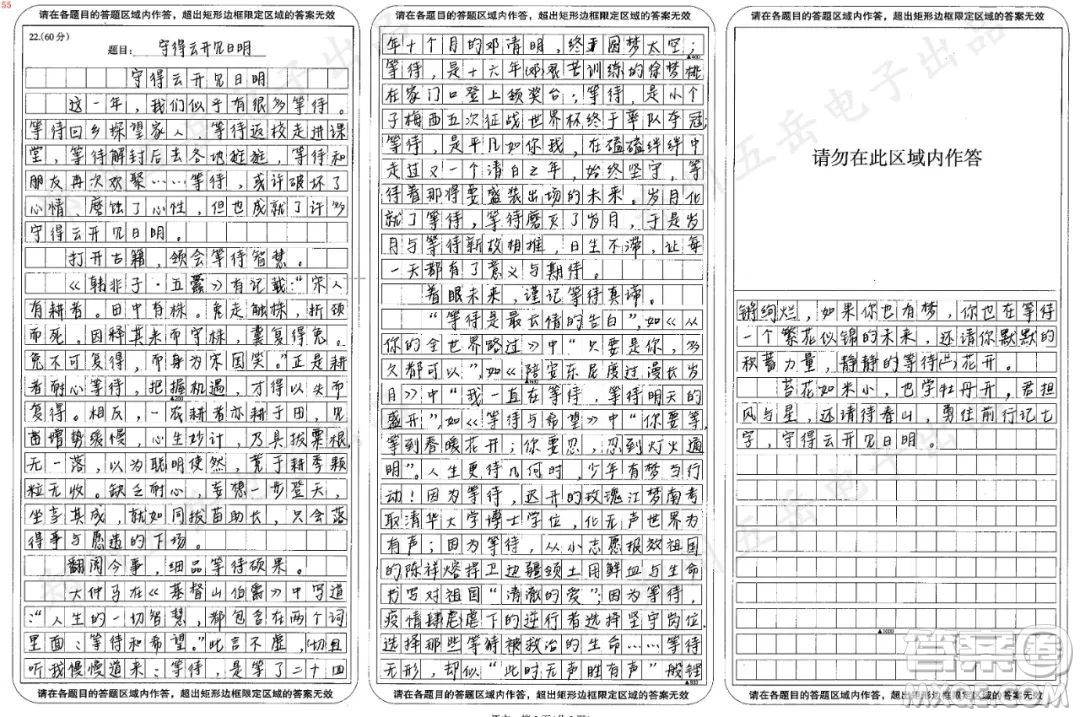 55
请在各题目的答题区域内作答，超出矩形边框限定区域的答案无效
22.(60分)
题目：守得云开见日明
守得云开见日明
这一年，我们似乎有很多等待。
等待回乡探望家人，等待返校走进课
堂，等待解封后去各地旅游，等待和
朋友再次欢聚……等待，或许破坏了
心情、磨蚀了心性，但也成就了许多
守得云开见日明。
打开古籍，领会等待智慧。
《韩非子·五蠹》有记载：“宋人
有耕者。田中有株。兔走触株，折颈
而死。因释其耒而守株，冀复得兔。
兔不可复得，而身为宋国笑。”正是耕
者耐心等待，把握机遇，才得以失而
复得。相反，一农耕者亦耕于田，见
苗增势缓慢，心生妙计，乃具拔粟根
无一落，以为聪明使然，荒于耕季颗
粒无收。缺乏耐心，妄想一步登天，
坐享其成，就如同拔苗助长，只会落
得事与愿违的下场。
翻阅今事，细品等待硕果。
大仲马在《基督山伯爵》中写道
：“人生的一切智慧，都包含在两个词
里面：等待和希望。”此言不虚，切且
听我慢慢道来：等待，是等了二十四
请在各题目的答题区域内作答，超出矩形边框限定区域的答案无效
请在各题目的答题区域内作答，超出矩形边框限定区域的答案无效
年十个月的邓清明，终于圆梦太空；
等待，是十六年艰苦训练的徐梦桃
在家门口登上领奖台；等待，是小个
子梅西五次征战世界杯终于率队夺冠；
等待，是平凡如你我，在磕磕绊绊中
走过又一个清日之年，始终坚守，等
待着那将要盛装出场的未来。岁月化
就了等待，等待磨灭了岁月，于是岁
月与等待新故相推，日生不滞，让每
一天都有了意义与期待。
着眼未来，谨记等待真谛。
“等待是最长情的告白”，如《从
你的全世界路过》中“只要是你，多
久都可以”，如《陪安东尼度过漫长岁
月》中“我一直在等待，等待明天的
盛开”，如《等待与希望》中“你要等，
等到春暖花开；你要忍，忍到灯火通
明”。人生更待几何时，少年有梦当行
动！因为等待，迟开的玫瑰江梦南考
取清华大学博士学位，化无声世界为
有声；因为等待，从小志愿报效祖国
的陈祥榕捍卫边疆领土用鲜血与生命
书写对祖国“清澈的爱”；因为等待，
疫情肆虐虐下的逆行者选择坚守岗位，
选择那些等待被救治的生命……等待
无形，却似“此时无声胜有声”般铿
请在各题目的答题区域内作答，超出矩形边框限定区域的答案无效
请在各题目的答题区域内作答，超出矩形边框限定区域的答案无效
请勿在此区域内作答
锵绚烂，如果你也有梦，你也在等待
一个繁花似锦的未来，还请你默默的
积蓄力量，静静的等待花开。
苔花如米小，也学牡丹开，君担
风与星，还请待春山，勇往前行记七
字，守得云开见日明。
请在各题目的答题区域内作答，超出矩形边框限定区域的答案无效